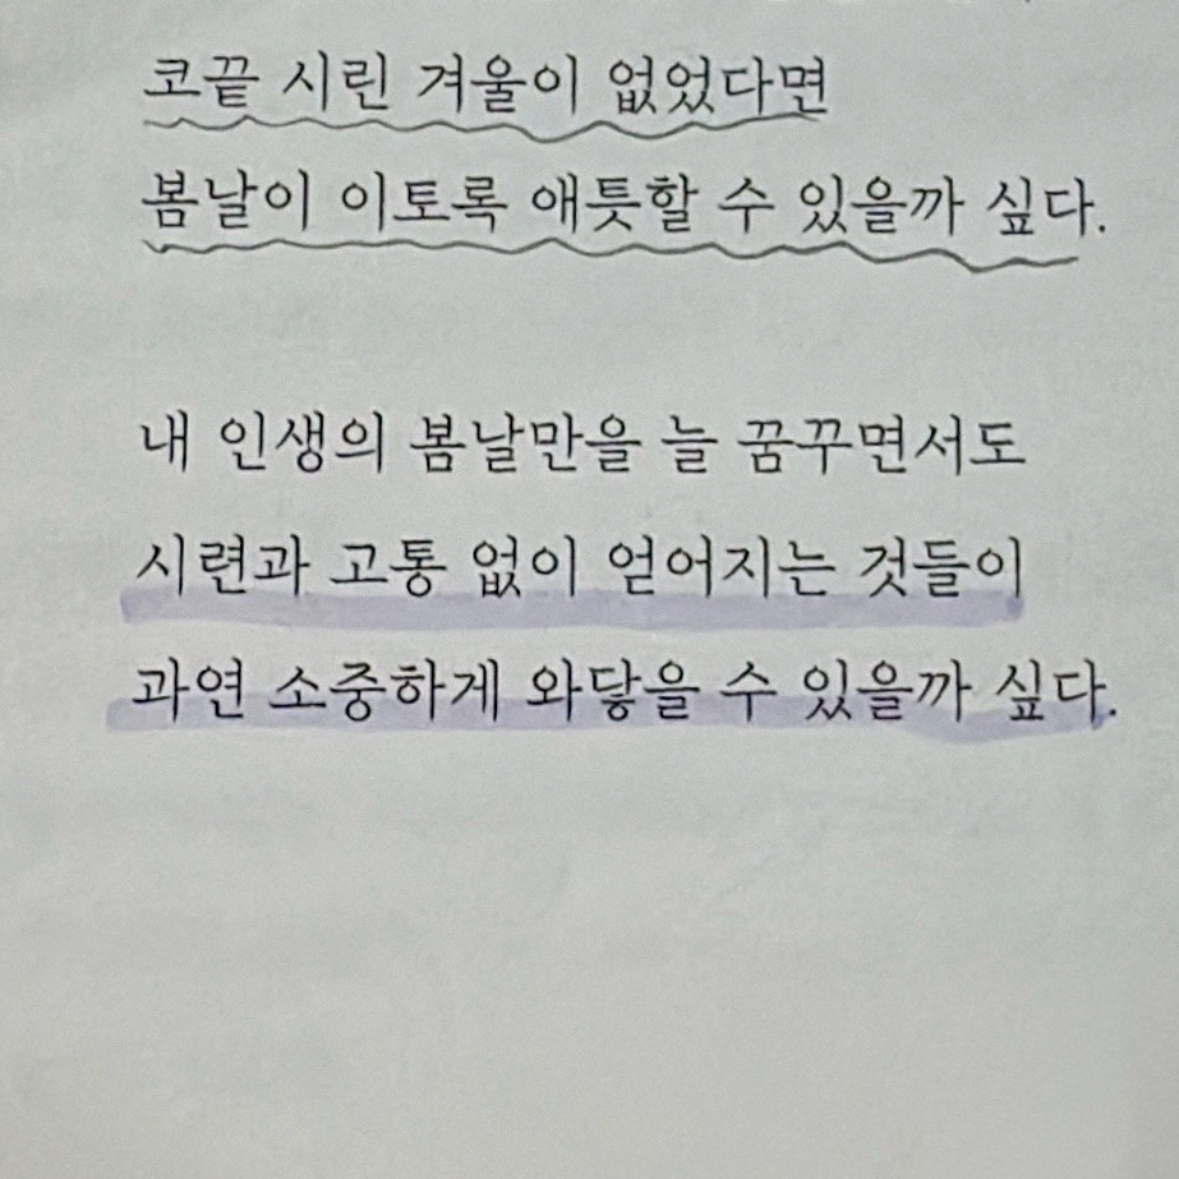 코끝 시린 겨울이 없었다면
봄날이 이토록 애틋할 수 있을까 싶다.
내 인생의 봄날만을 늘 꿈꾸면서도
시련과 고통 없이 얻어지는 것들이
과연 소중하게 와닿을 수 있을까 싶다.